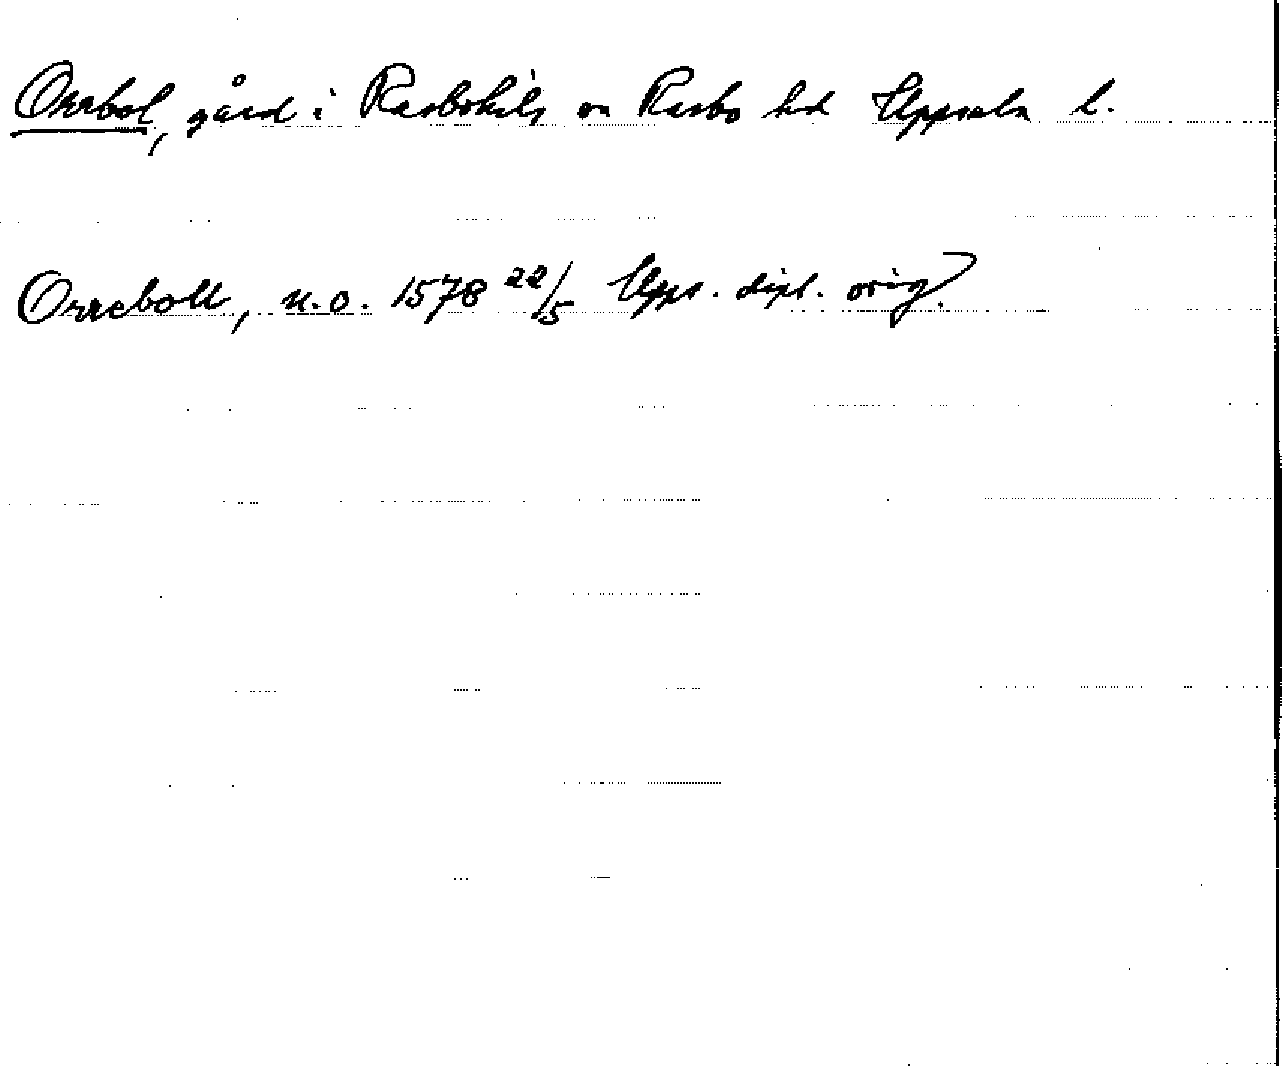 Orrbol, gård i Rasbokils sn Rasbo hd Uppsala l.
Orreboll, u.o. 1578 22/5 Upps. dipl. orig.